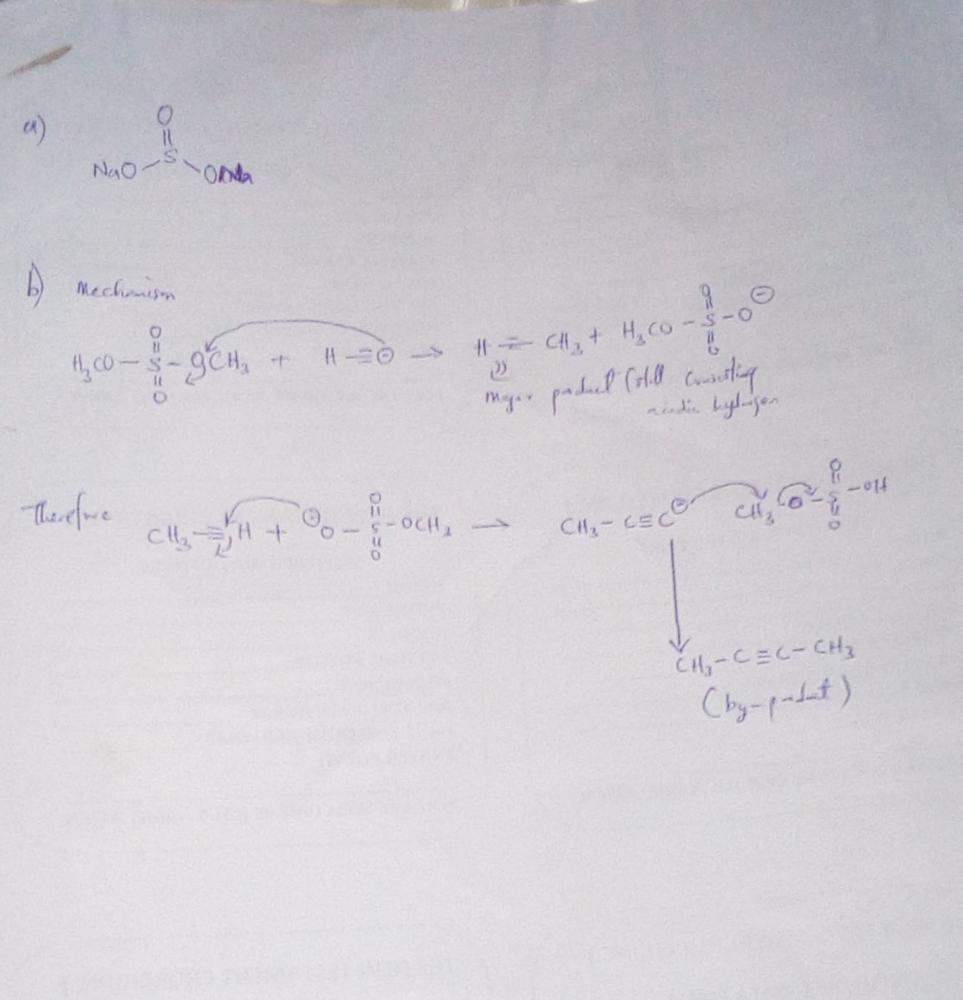 a)
O
NaO – S – ONa
b) Mechanism
O O
H₃CO – S – OCH₃ + H – ≡ ⊖ → H – ≡ – CH₃ + H₃CO – S – O ⊖
O O
Major product (still consisting
hydrogen
O O
Therefore CH₃ – ≡ – H + ⊖O – S – OCH₃ → CH₃ – C ≡ C ⊖ CH₃ – O – S – OH
O O
CH₃ – C ≡ C – CH₃
(by-product)